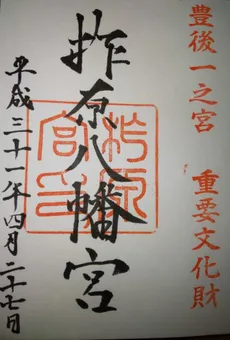 豊後一之宮　重要文化財
柞原八幡宮
平成三十一年四月二十七日